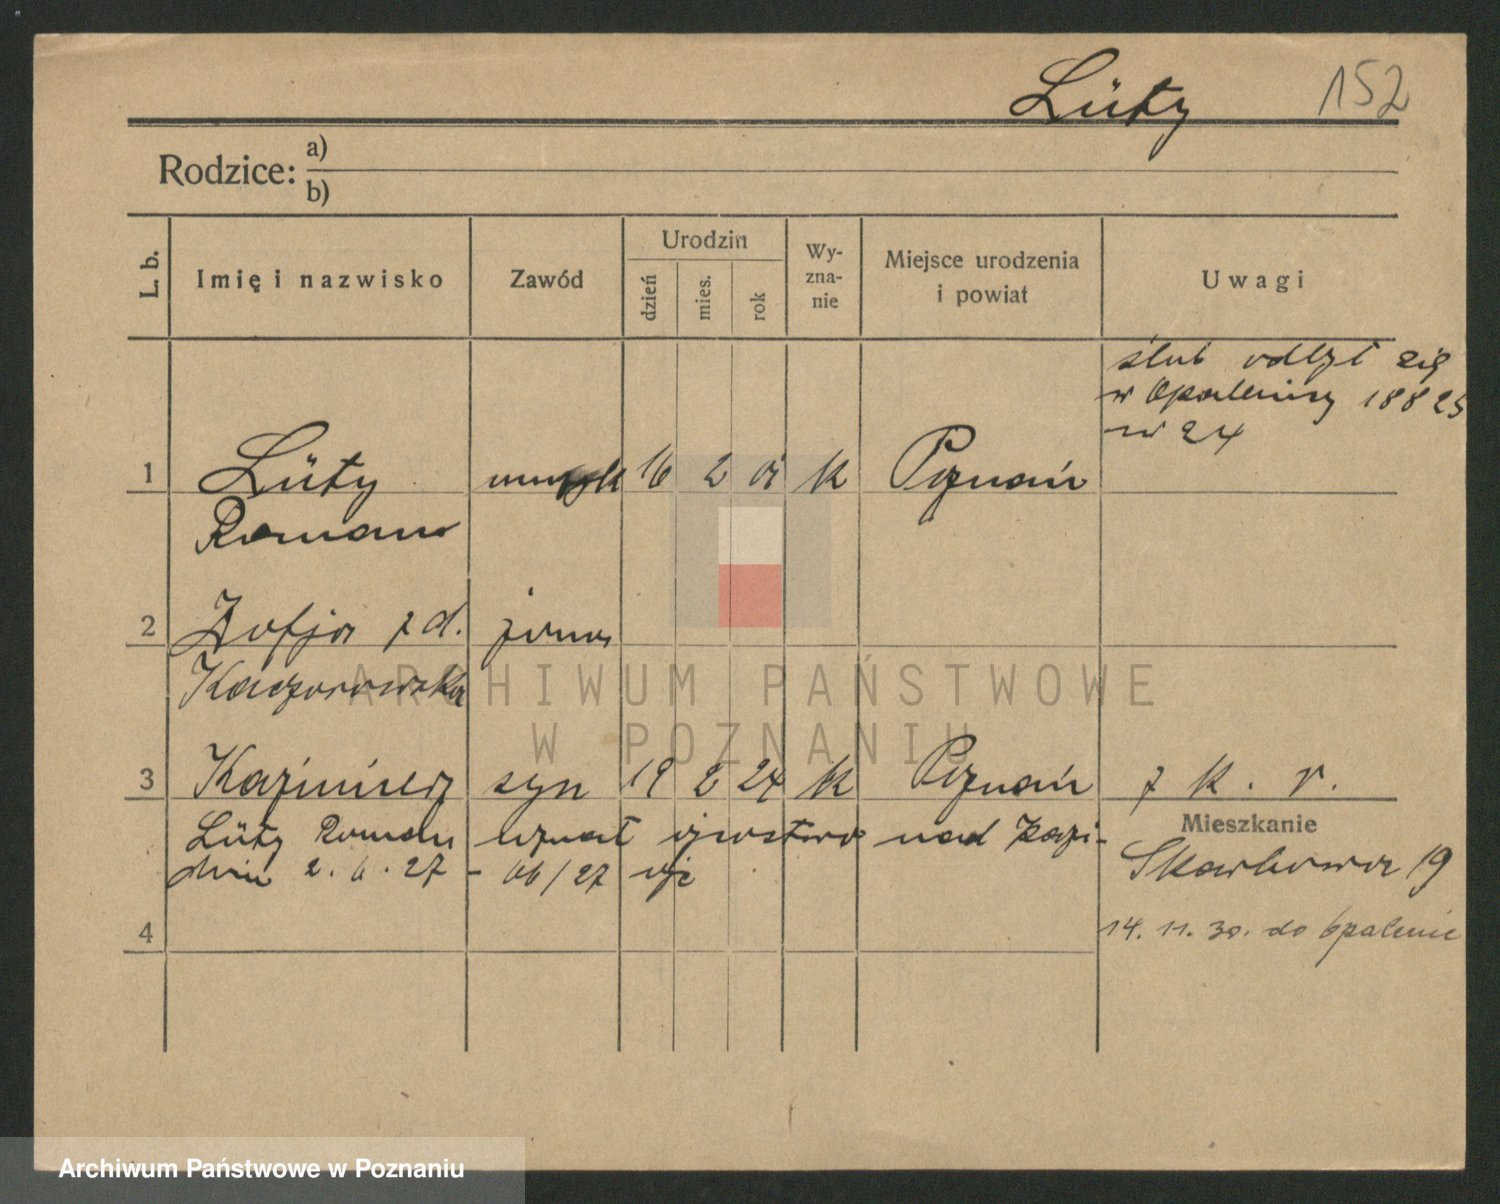 Lüty 152
Rodzice: a)
b)
L. b. Imię i nazwisko Zawód Urodzin dzień mies. rok Wy-zna-nie Miejsce urodzenia i powiat Uwagi
ślub odbył się
w Opalenicy 18 8 25
nr 24
1 Lüty muzyk 16 2 01 k Poznań
Roman
2 Zofja z d. żona
Kaczorowska
3 Kazimierz syn 19 2 24 k Poznań z k. r.
Lüty Roman uznał ojcostwo nad Kazi-
dnia 2. 6. 27 - 66/27
Mieszkanie
Skarbowa 19
4 14. 11. 30. do Opalenic
ARCHIWUM PAŃSTWOWE
W POZNANIU
Archiwum Państwowe w Poznaniu